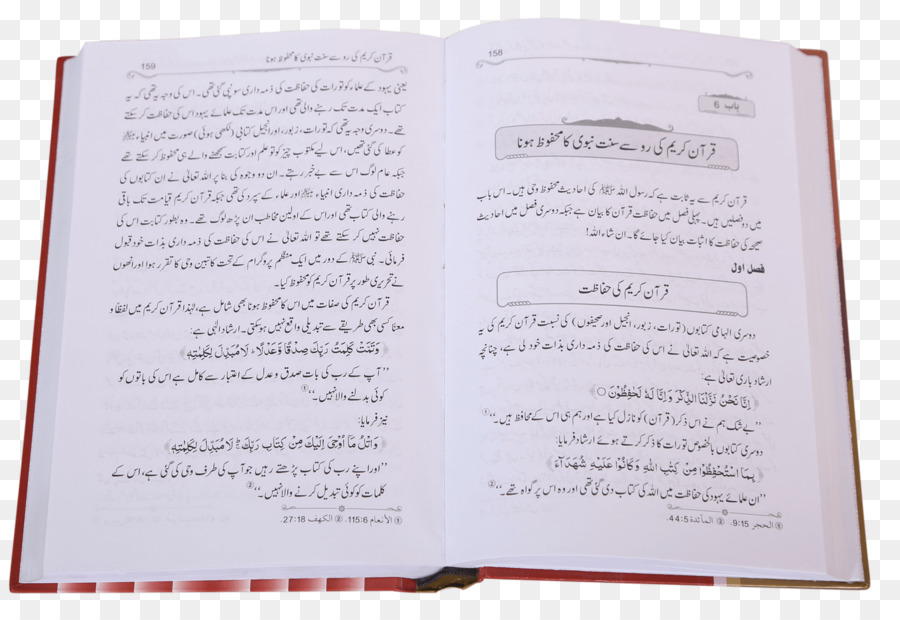 158
باب 6
قرآن کریم کی رو سے سنت نبوی کا محفوظ ہونا
قرآن کریم سے یہ ثابت ہے کہ رسول اللہ ﷺ کی احادیث محفوظ وحی ہیں۔ اس باب
میں دو فصلیں ہیں۔ پہلی فصل میں حفاظت قرآن کا بیان ہے جبکہ دوسری فصل میں احادیث
صحیحہ کی حفاظت کا اثبات بیان کیا جائے گا۔ ان شاء اللہ!
فصل اول
قرآن کریم کی حفاظت
دوسری الہامی کتابوں (تورات، زبور، انجیل اور صحیفوں) کی نسبت قرآن کریم کی یہ
خصوصیت ہے کہ اللہ تعالیٰ نے اس کی حفاظت کی ذمہ داری بذات خود لی ہے، چنانچہ
ارشاد باری تعالیٰ ہے:
﴿اِنَّا نَحْنُ نَزَّلْنَا الذِّكْرَ وَ اِنَّا لَهٗ لَحٰفِظُوْنَ ۝﴾
’’بے شک ہم نے اس ذکر (قرآن) کو نازل کیا ہے اور ہم ہی اس کے محافظ ہیں۔‘‘①
دوسری کتابوں بالخصوص تورات کا ذکر کرتے ہوئے ارشاد فرمایا:
﴿بِمَا اسْتُحْفِظُوْا مِنْ كِتٰبِ اللّٰهِ وَ كَانُوْا عَلَيْهِ شُهَدَآءَ﴾
’’ان علمائے یہود کی حفاظت میں اللہ کی کتاب دی گئی تھی اور وہ اس پر گواہ تھے۔‘‘②
① الحجر 9:15. ② المآئدة 44:5.
159
قرآن کریم کی رو سے سنت نبوی کا محفوظ ہونا
یعنی یہود کے علماء کو تورات کی حفاظت کی ذمہ داری سونپی گئی تھی۔ اس کی وجہ یہ تھی کہ یہ
کتاب ایک مدت تک رہنے والی تھی اور اس مدت تک علمائے یہود اس کی حفاظت کر سکتے
تھے۔ دوسری وجہ یہ تھی کہ تورات، زبور، اور انجیل کتابی (لکھی ہوئی) صورت میں انبیاء ﷺ
کو عطا کی گئی تھیں، اس لیے مکتوب چیز کو تو علم اور کتابت سمجھنے والے ہی محفوظ کر سکتے تھے
جبکہ عام لوگ اس سے بے خبر رہتے۔ ان دو وجوہ کی بنا پر اللہ تعالیٰ نے ان کتابوں کی
حفاظت کی ذمہ داری انبیاء ﷺ اور علماء کے سپرد کی تھی جبکہ قرآن کریم قیامت تک باقی
رہنے والی کتاب تھی اور اس کے اولین مخاطب ان پڑھ لوگ تھے۔ وہ بطور کتابت اس کی
حفاظت نہیں کر سکتے تھے تو اللہ تعالیٰ نے اس کی حفاظت کی ذمہ داری بذات خود قبول
فرمائی۔ نبی ﷺ کے دور میں ایک منظم پروگرام کے تحت کاتبین وحی کا تقرر ہوا اور انھوں
نے تحریری طور پر قرآن کریم کو محفوظ کیا۔
قرآن کریم کی صفات میں اس کا محفوظ ہونا بھی شامل ہے، لہٰذا قرآن کریم میں لفظًا و
معنًا کسی بھی طریقے سے تبدیلی واقع نہیں ہو سکتی۔ ارشاد الٰہی ہے:
﴿وَ تَمَّتْ كَلِمَتُ رَبِّكَ صِدْقًا وَّ عَدْلًا ؕ لَا مُبَدِّلَ لِكَلِمٰتِهٖ﴾
’’آپ کے رب کی بات صدق و عدل کے اعتبار سے کامل ہے اس کی باتوں کو
کوئی بدلنے والا نہیں۔‘‘①
نیز فرمایا:
﴿وَ اتْلُ مَاۤ اُوْحِیَ اِلَيْكَ مِنْ كِتَابِ رَبِّكَ ؕ لَا مُبَدِّلَ لِكَلِمٰتِهٖ﴾
’’اور اپنے رب کی کتاب پڑھتے رہیں جو آپ کی طرف وحی کی گئی ہے، اس کے
کلمات کو کوئی تبدیل کرنے والا نہیں۔‘‘②
① الأنعام 115:6. ② الكهف 27:18.